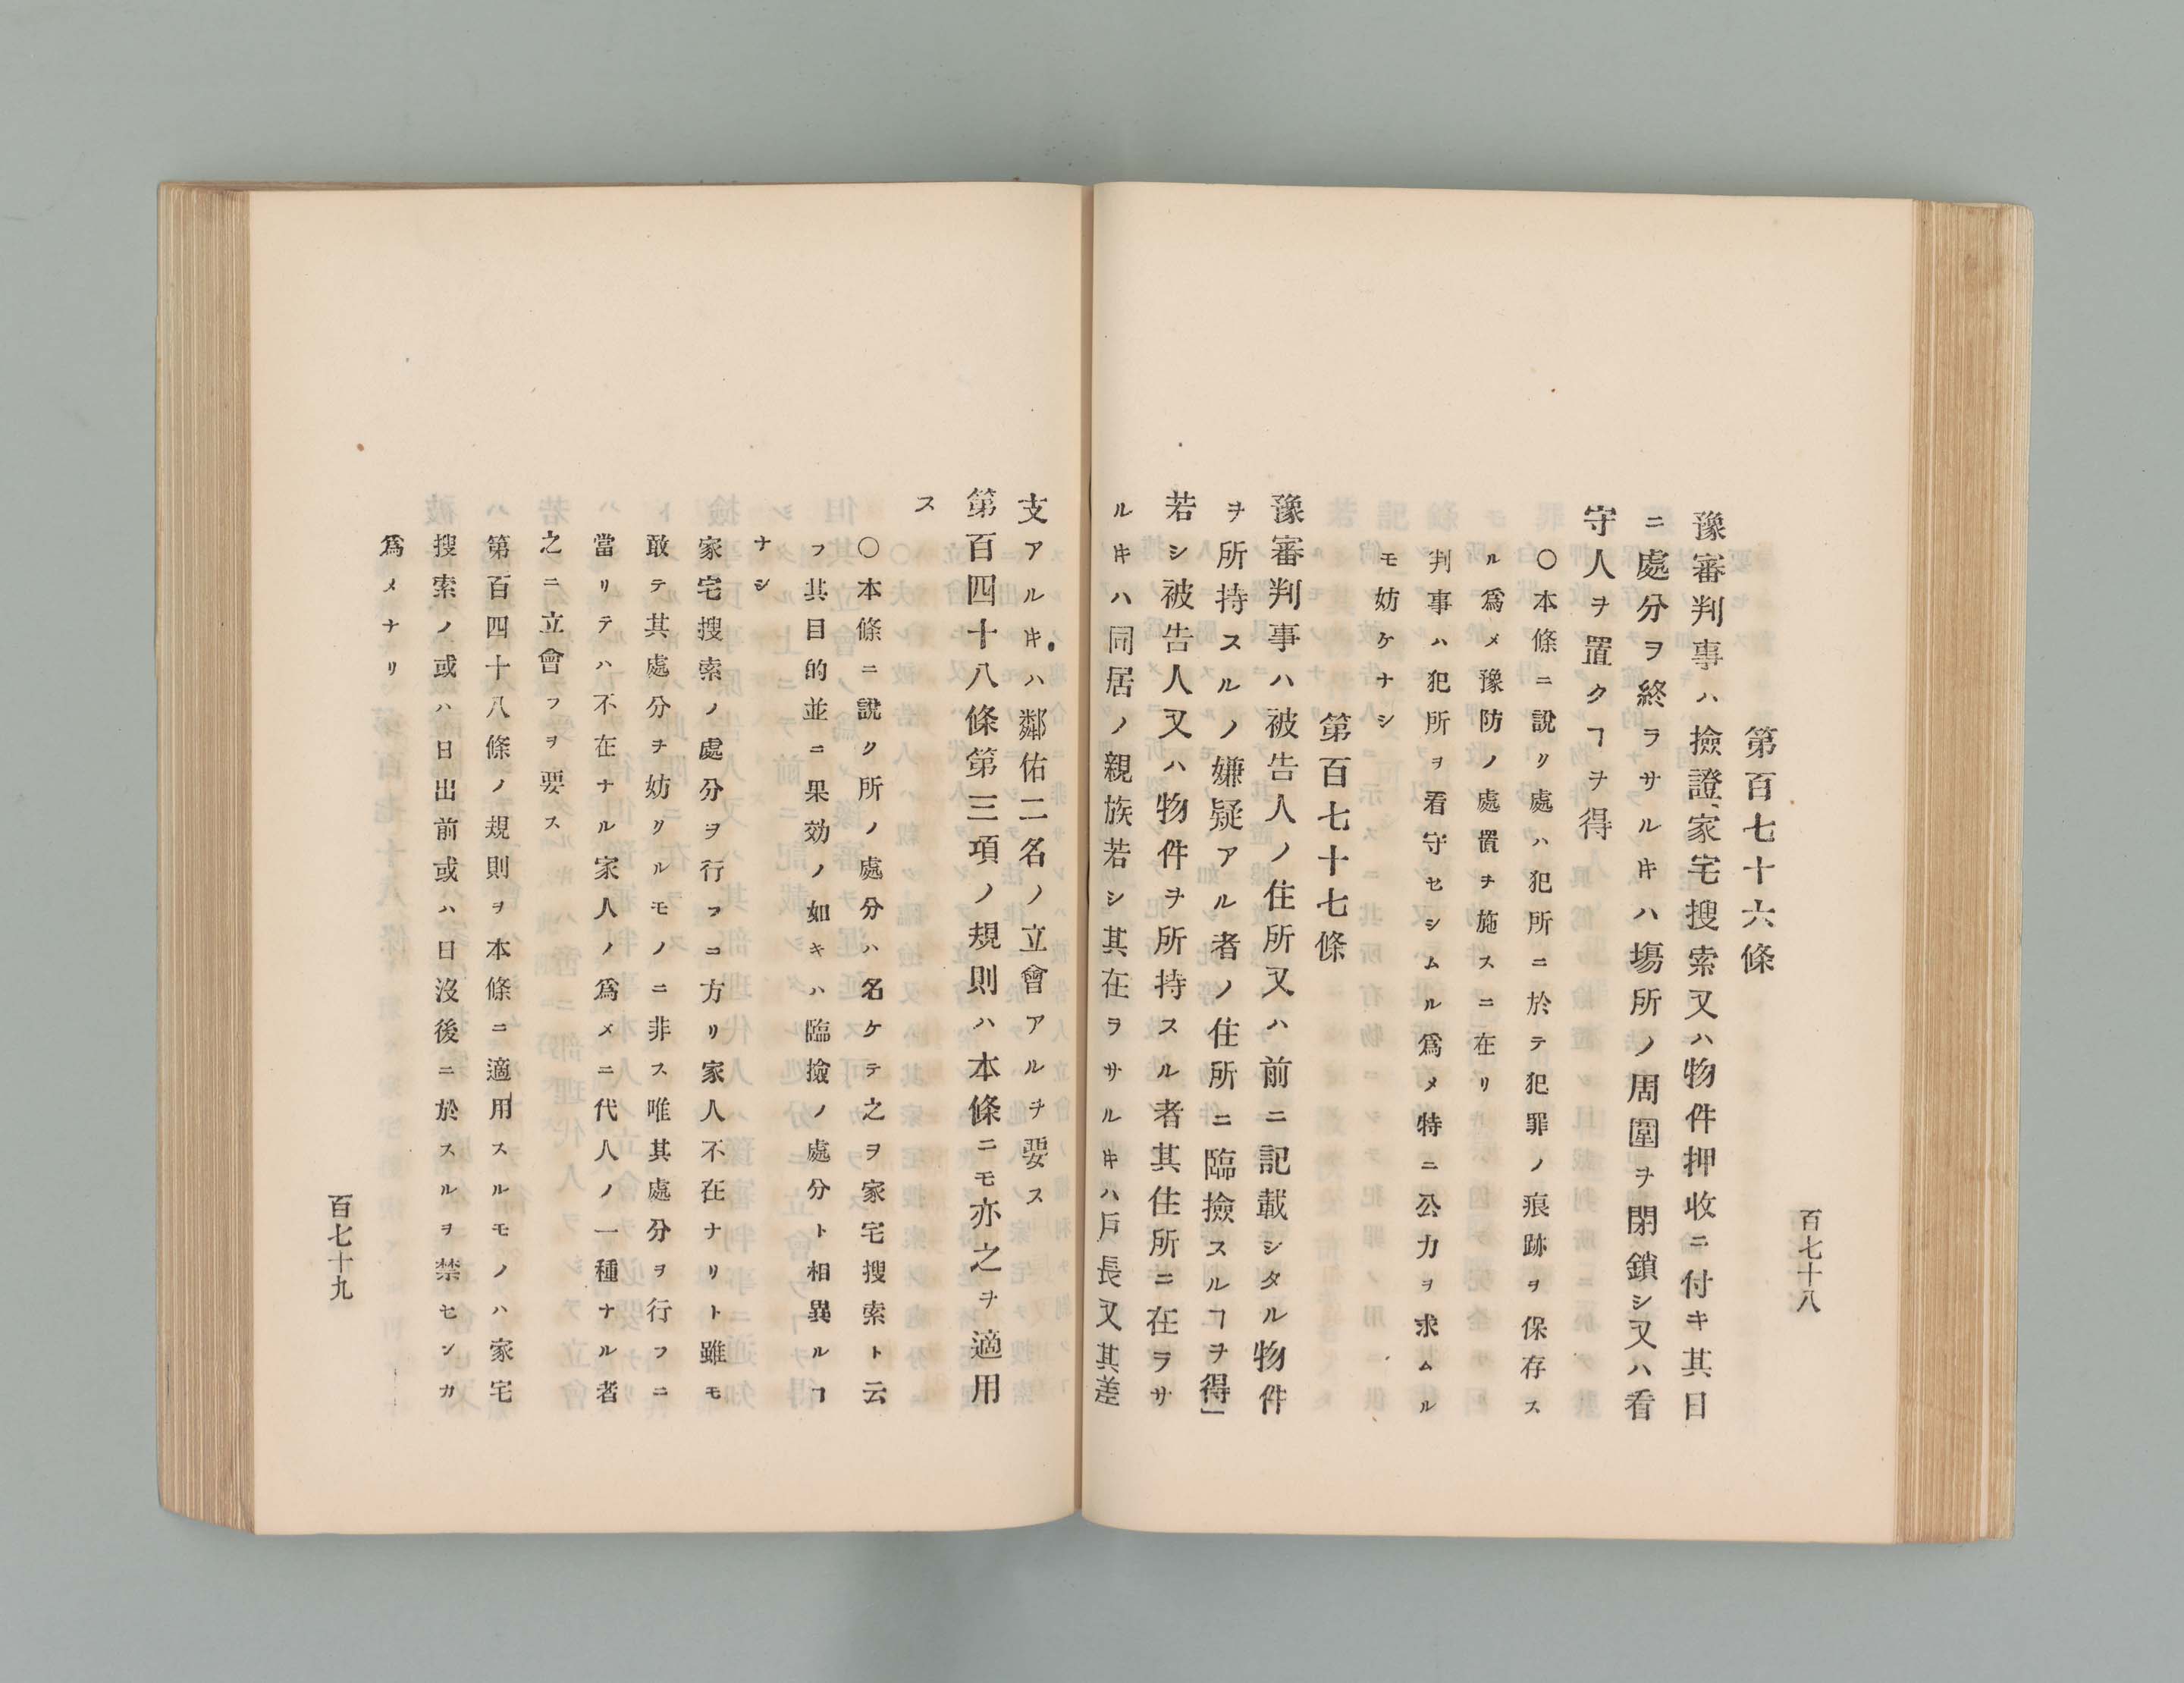 百七十八
第百七十六條
豫審判事ハ檢證、家宅搜索又ハ物件押收ニ付キ其日
ニ處分ヲ終ラサルキハ塲所ノ周圍ヲ閉鎖シ又ハ看
守人ヲ置クヿヲ得
〇本條ニ說ク處ハ犯所ニ於テ犯罪ノ痕跡ヲ保存ス
ル爲メ豫防ノ處置ヲ施スニ在リ
判事ハ犯所ヲ看守セシムル爲メ特ニ公力ヲ求ムル
モ妨ケナシ
第百七十七條
豫審判事ハ被告人ノ住所又ハ前ニ記載シタル物件
ヲ所持スルノ嫌疑アル者ノ住所ニ臨撿スルヿヲ得」
若シ被告人又ハ物件ヲ所持スル者其住所ニ在ラサ
ルキハ同居ノ親族若シ其在ラサルキハ戶長又其差
支アルキハ鄰佑二名ノ立會アルヲ要ス
第百四十八條第三項ノ規則ハ本條ニモ亦之ヲ適用
ス
〇本條ニ說ク所ノ處分ハ名ケテ之ヲ家宅搜索ト云
フ其目的並ニ果効ノ如キハ臨撿ノ處分ト相異ルヿ
ナシ
家宅搜索ノ處分ヲ行フコ方リ家人不在ナリト雖モ
敢テ其處分ヲ妨クルモノニ非ス唯其處分ヲ行フニ
當リテハ不在ナル家人ノ爲メニ代人ノ一種ナル者
之ニ立會フヲ要ス
第百四十八條ノ規則ヲ本條ニ適用スルモノハ家宅
搜索ノ或ハ日出前或ハ日沒後ニ於スルヲ禁センカ
爲メナリ
百七十九